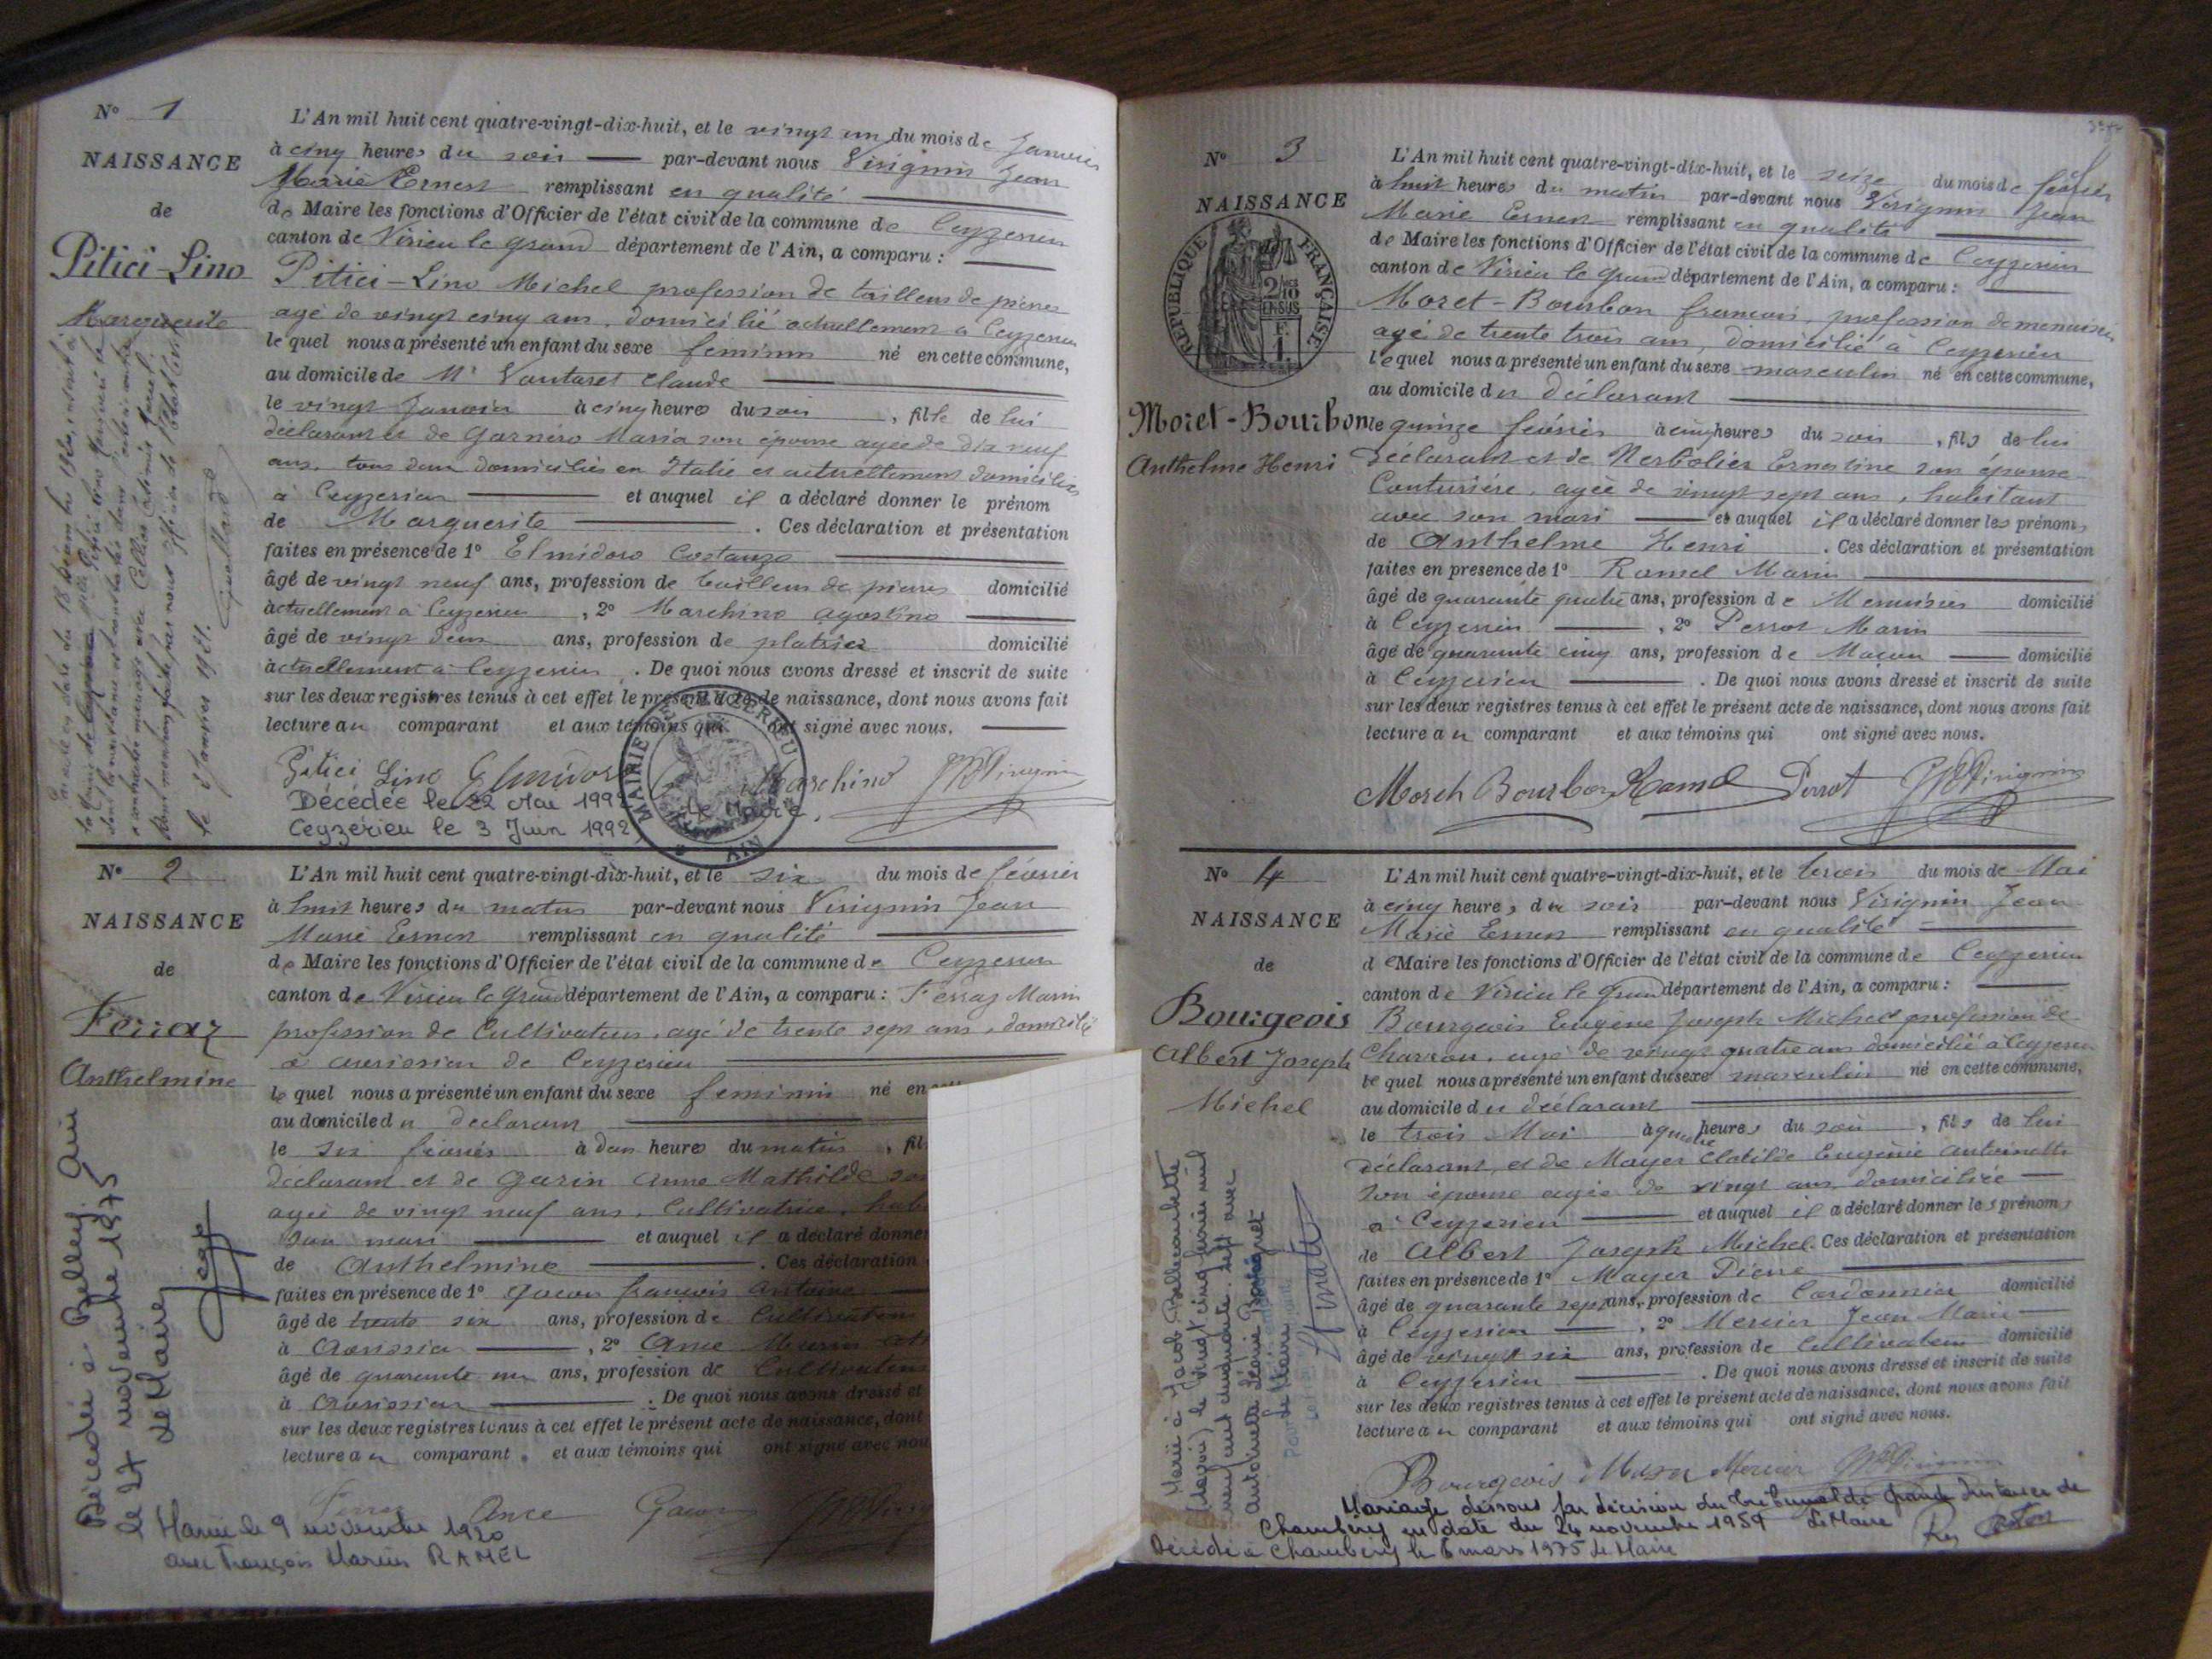 N° 1
NAISSANCE
de
Pitici-Lino
Marguerite
L'An mil huit cent quatre-vingt-dix-huit, et le vingt un du mois de Janvier
à cinq heures du soir par-devant nous Virignin Jean
Marie Ernest remplissant en qualité
de Maire les fonctions d'Officier de l'état civil de la commune de Ceyzerieu
canton de Virieu le Grand département de l'Ain, a comparu :
Pitici-Lino Michel profession de tailleur de pierres
agé de vingt cinq ans, domicilié actuellement a Ceyzerieu
lequel nous a présenté un enfant du sexe feminin né en cette commune,
au domicile de Mr Vautaret Claude
le vingt Janvier à cinq heures du soir, fille de lui
déclarant et de Garnéro Maria son épouse agée de dix neuf
ans, tous deux domiciliés en Italie et actuellement domiciliés
à Ceyzerieu et auquel il a déclaré donner le prénom
de Marguerite. Ces déclaration et présentation
faites en présence de 1° Elmidoro Costanzo
âgé de vingt neuf ans, profession de tailleur de pierres domicilié
actuellement a Ceyzerieu, 2° Marchino Agostino
âgé de vingt deux ans, profession de platrier domicilié
actuellement à Ceyzerieu. De quoi nous avons dressé et inscrit de suite
sur les deux registres tenus à cet effet le présent acte de naissance, dont nous avons fait
lecture au comparant et aux témoins qui ont signé avec nous.
Pitici Lino Elmidoro Marchino
Décédée le 22 Mai 1992
Ceyzérieu le 3 Juin 1992 Le Maire,
MAIRIE DE CEYZERIEU
AIN
le 4 Janvier 1921.
N° 2
NAISSANCE
de
Ferraz
Anthelmine
L'An mil huit cent quatre-vingt-dix-huit, et le six du mois de février
à huit heures du matin par-devant nous Virignin Jean
Marie Ernest remplissant en qualité
de Maire les fonctions d'Officier de l'état civil de la commune de Ceyzerieu
canton de Virieu le Grand département de l'Ain, a comparu : Ferraz Marin
profession de Cultivateur, agé de trente sept ans, domicilié
à de Ceyzerieu
lequel nous a présenté un enfant du sexe feminin né en
au domicile du déclarant
le six février à deux heures du matin, fil
déclarant et de Garin Anne Mathilde
agée de vingt neuf ans, Cultivatrice,
son mari et auquel il a déclaré donner
de Anthelmine. Ces déclaration
faites en présence de 1° Gacon françois Antoine
âgé de trente six ans, profession de Cultivateur
à, 2° Ance Marin
âgé de quarante un ans, profession de Cultivateur
à. De quoi nous avons dressé et
sur les deux registres tenus à cet effet le présent acte de naissance, dont
lecture au comparant et aux témoins qui ont signé avec nou
Ferraz Ance Gacon
Décédée à Belley, Ain
le 27 novembre 1975
Le Maire,
Marié le 9 novembre 1920
avec François Marius RAMEL
N° 3
NAISSANCE
RÉPUBLIQUE FRANÇAISE
2/10
EN SUS
F.
1
Moret-Bourbon
Anthelme Henri
L'An mil huit cent quatre-vingt-dix-huit, et le seize du mois de février
à huit heures du matin par-devant nous Virignin Jean
Marie Ernest remplissant en qualité
de Maire les fonctions d'Officier de l'état civil de la commune de Ceyzerieu
canton de Virieu le Grand département de l'Ain, a comparu :
Moret-Bourbon françois, profession de menuisier
agé de trente trois ans, domicilié à Ceyzerieu
lequel nous a présenté un enfant du sexe masculin né en cette commune,
au domicile du déclarant
le quinze février à cinq heures du soir, fils de lui
déclarant et de Nerbolier Ernestine son épouse
Couturière, agée de vingt sept ans, habitant
avec son mari et auquel il a déclaré donner les prénoms
de Anthelme Henri. Ces déclaration et présentation
faites en présence de 1° Ramel Marin
âgé de quarante quatre ans, profession de Menuisier domicilié
à Ceyzerieu, 2° Perrot Marin
âgé de quarante cinq ans, profession de Maçon domicilié
à Ceyzerieu. De quoi nous avons dressé et inscrit de suite
sur les deux registres tenus à cet effet le présent acte de naissance, dont nous avons fait
lecture au comparant et aux témoins qui ont signé avec nous.
Moret Bourbon Ramel Perrot
N° 4
NAISSANCE
de
Bourgeois
Albert Joseph
Michel
L'An mil huit cent quatre-vingt-dix-huit, et le trois du mois de Mai
à cinq heures du soir par-devant nous Virignin Jean
Marie Ernest remplissant en qualité
de Maire les fonctions d'Officier de l'état civil de la commune de Ceyzerieu
canton de Virieu le Grand département de l'Ain, a comparu :
Bourgeois Eugène Joseph Michel profession de
Charron, agé de vingt quatre ans domicilié à Ceyzerieu
lequel nous a présenté un enfant du sexe masculin né en cette commune,
au domicile du déclarant
le trois Mai à quatre heures du soir, fils de lui
déclarant, et de Mayer Clotilde Eugènie Antoinette
son épouse agée de vingt ans, domiciliée
à Ceyzerieu et auquel il a déclaré donner les prénoms
de Albert Joseph Michel. Ces déclaration et présentation
faites en présence de 1° Mayer Pierre
âgé de quarante sept ans, profession de Cordonnier domicilié
à Ceyzerieu, 2° Mercier Jean Marie
âgé de vingt six ans, profession de Cultivateur domicilié
à Ceyzerieu. De quoi nous avons dressé et inscrit de suite
sur les deux registres tenus à cet effet le présent acte de naissance, dont nous avons fait
lecture au comparant et aux témoins qui ont signé avec nous.
Bourgeois Mayer Mercier
Marié à Jacob-Bellecombette
(Savoie) le vingt cinq février mil
neuf cent avec
Antoinette
Mariage dissous par décision du tribunal de Grande Instance de
Chambéry en date du 24 novembre 1959 Le Maire
Décédé à Chambéry le 6 mars 1975 Le Maire